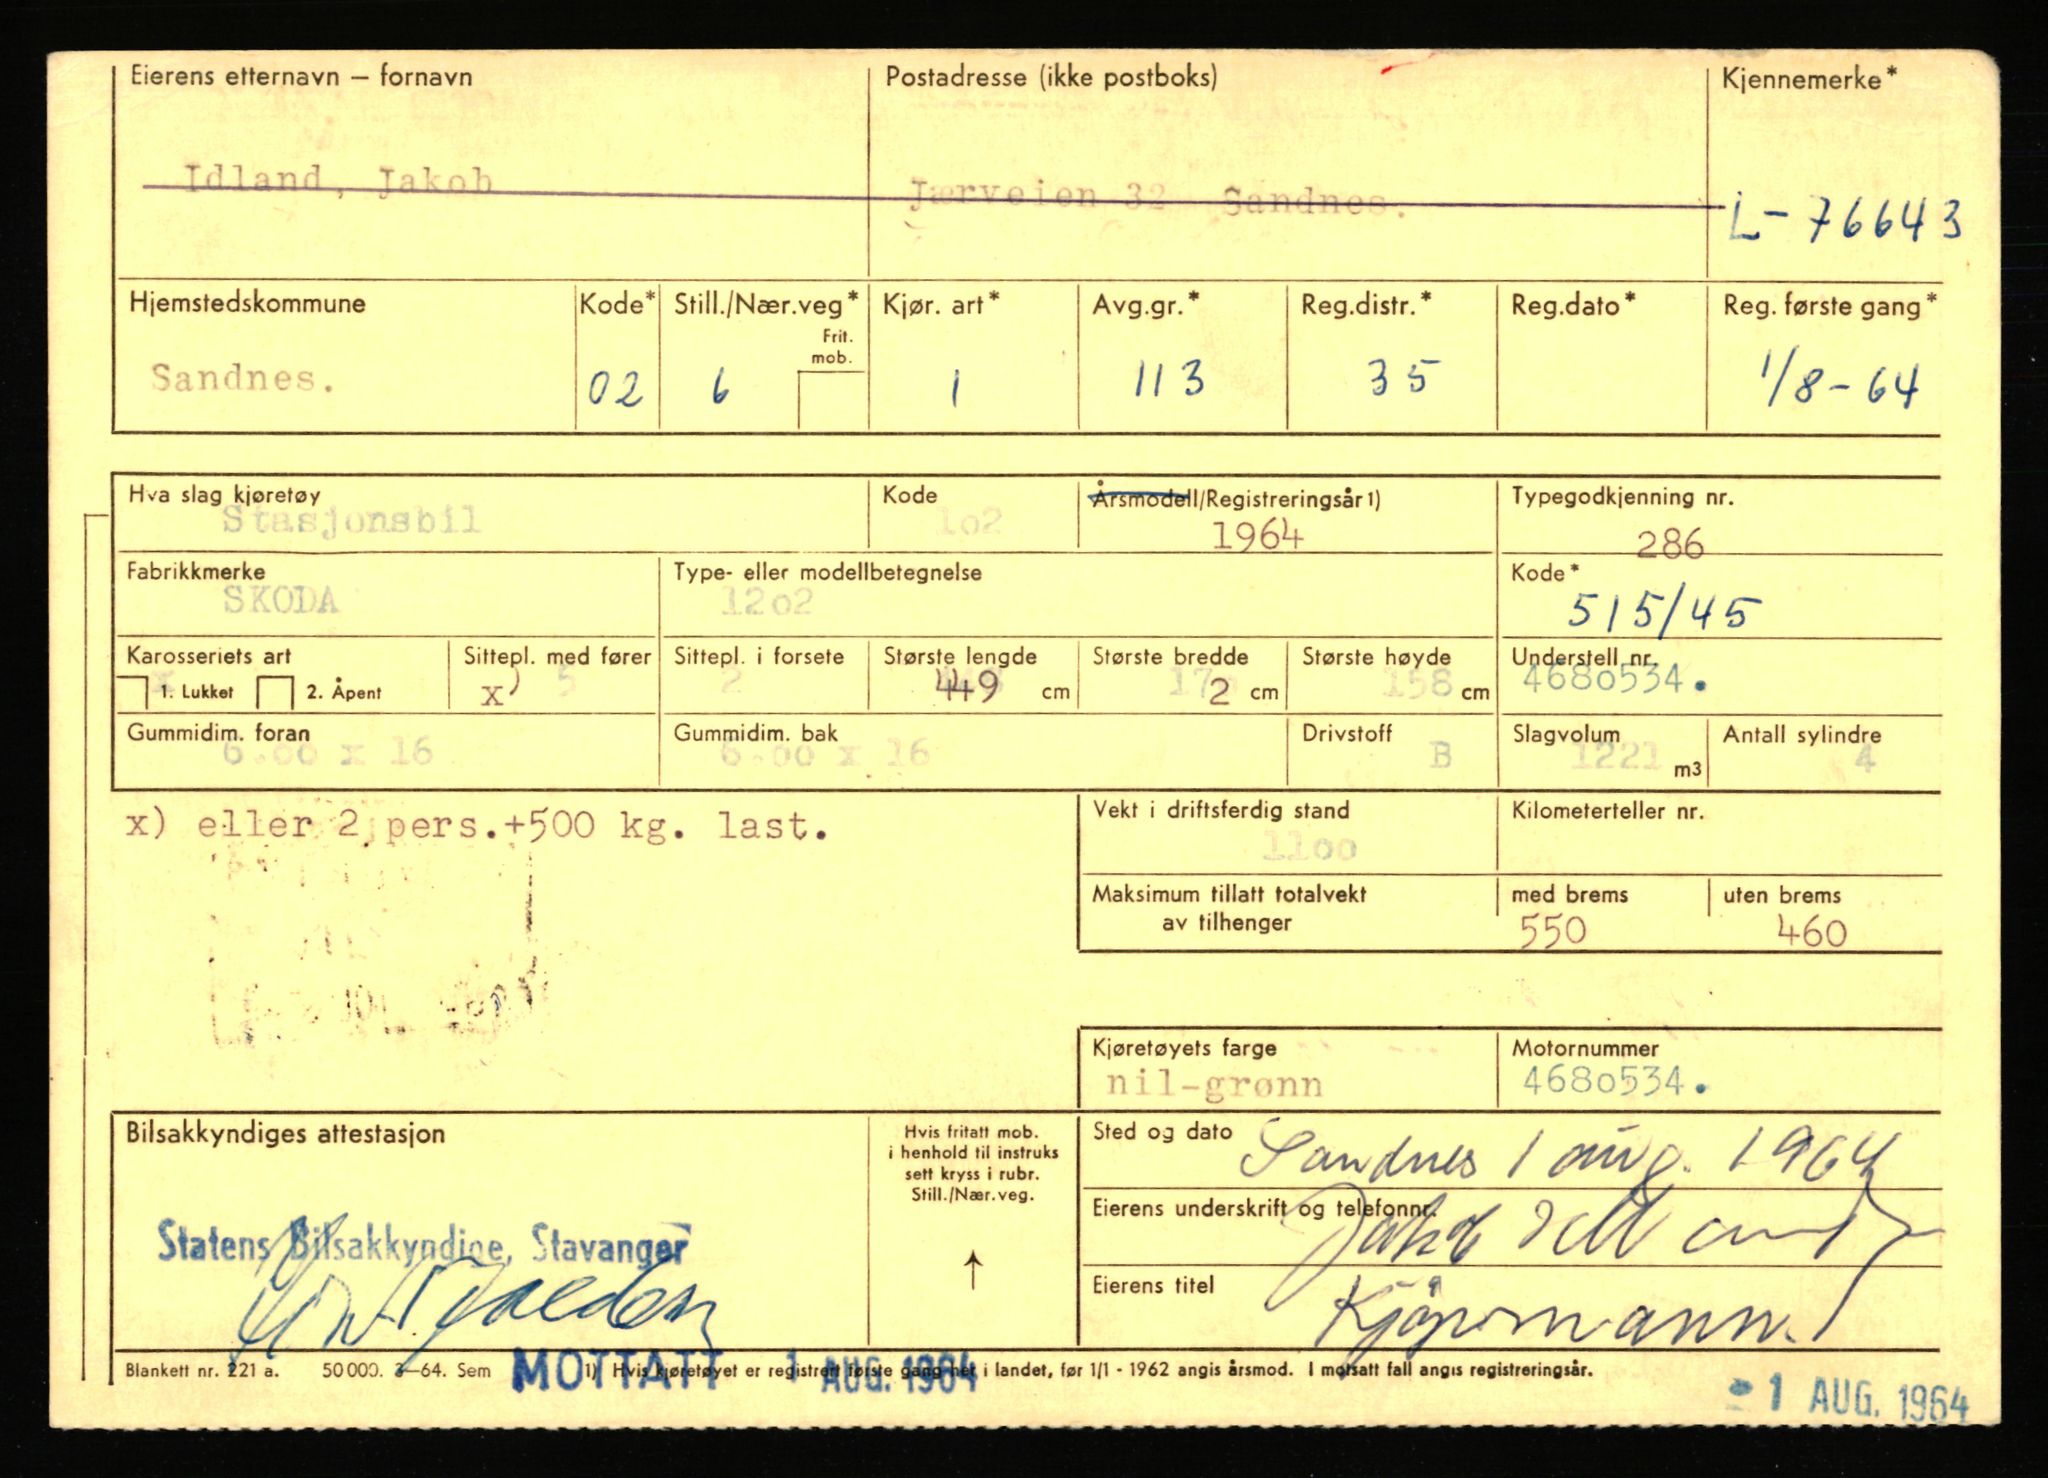 Eierens etternavn – fornavn Postadresse (ikke postboks) Kjennemerke*
Idland, Jakob Jærveien 32 Sandnes. L-76643
Hjemstedskommune Kode* Still./Nær.veg* Kjør. art* Avg.gr.* Reg.distr.* Reg.dato* Reg. første gang*
Frit. mob.
Sandnes. 02 6 1 113 35 1/8-64
Hva slag kjøretøy Kode Årsmodell/Registreringsår 1) Typegodkjenning nr.
Stasjonsbil 1o2 1964 286
Fabrikkmerke Type- eller modellbetegnelse Kode*
SKODA 12o2 515/45
Karosseriets art Sittepl. med fører Sittepl. i forsete Største lengde Største bredde Største høyde Understell nr.
x 1. Lukket 2. Åpent x) 5 2 449 cm 172 cm 158 cm 468o534.
Gummidim. foran Gummidim. bak Drivstoff Slagvolum Antall sylindre
6.oo x 16 6.oo x 16 B 1221 m3 4
x) eller 2 pers.+500 kg. last. Vekt i driftsferdig stand Kilometerteller nr.
11oo
Maksimum tillatt totalvekt av tilhenger med brems uten brems
550 460
Kjøretøyets farge Motornummer
nil-grønn 468o534.
Bilsakkyndiges attestasjon
Hvis fritatt mob.
i henhold til instruks
sett kryss i rubr.
Still./Nær.veg.
Sted og dato Sandnes 1 aug. 1964
Eierens underskrift og telefonnr. Jakob Idland
Statens Bilsakkyndige, Stavanger
Eierens titel Kjøpmann.
Blankett nr. 221 a. 50 000. 3–64. Sem 1) Hvis kjøretøyet er registrert første gang her i landet, før 1/1 - 1962 angis årsmod. I motsatt fall angis registreringsår.
MOTTATT 1 AUG. 1964
- 1 AUG. 1964